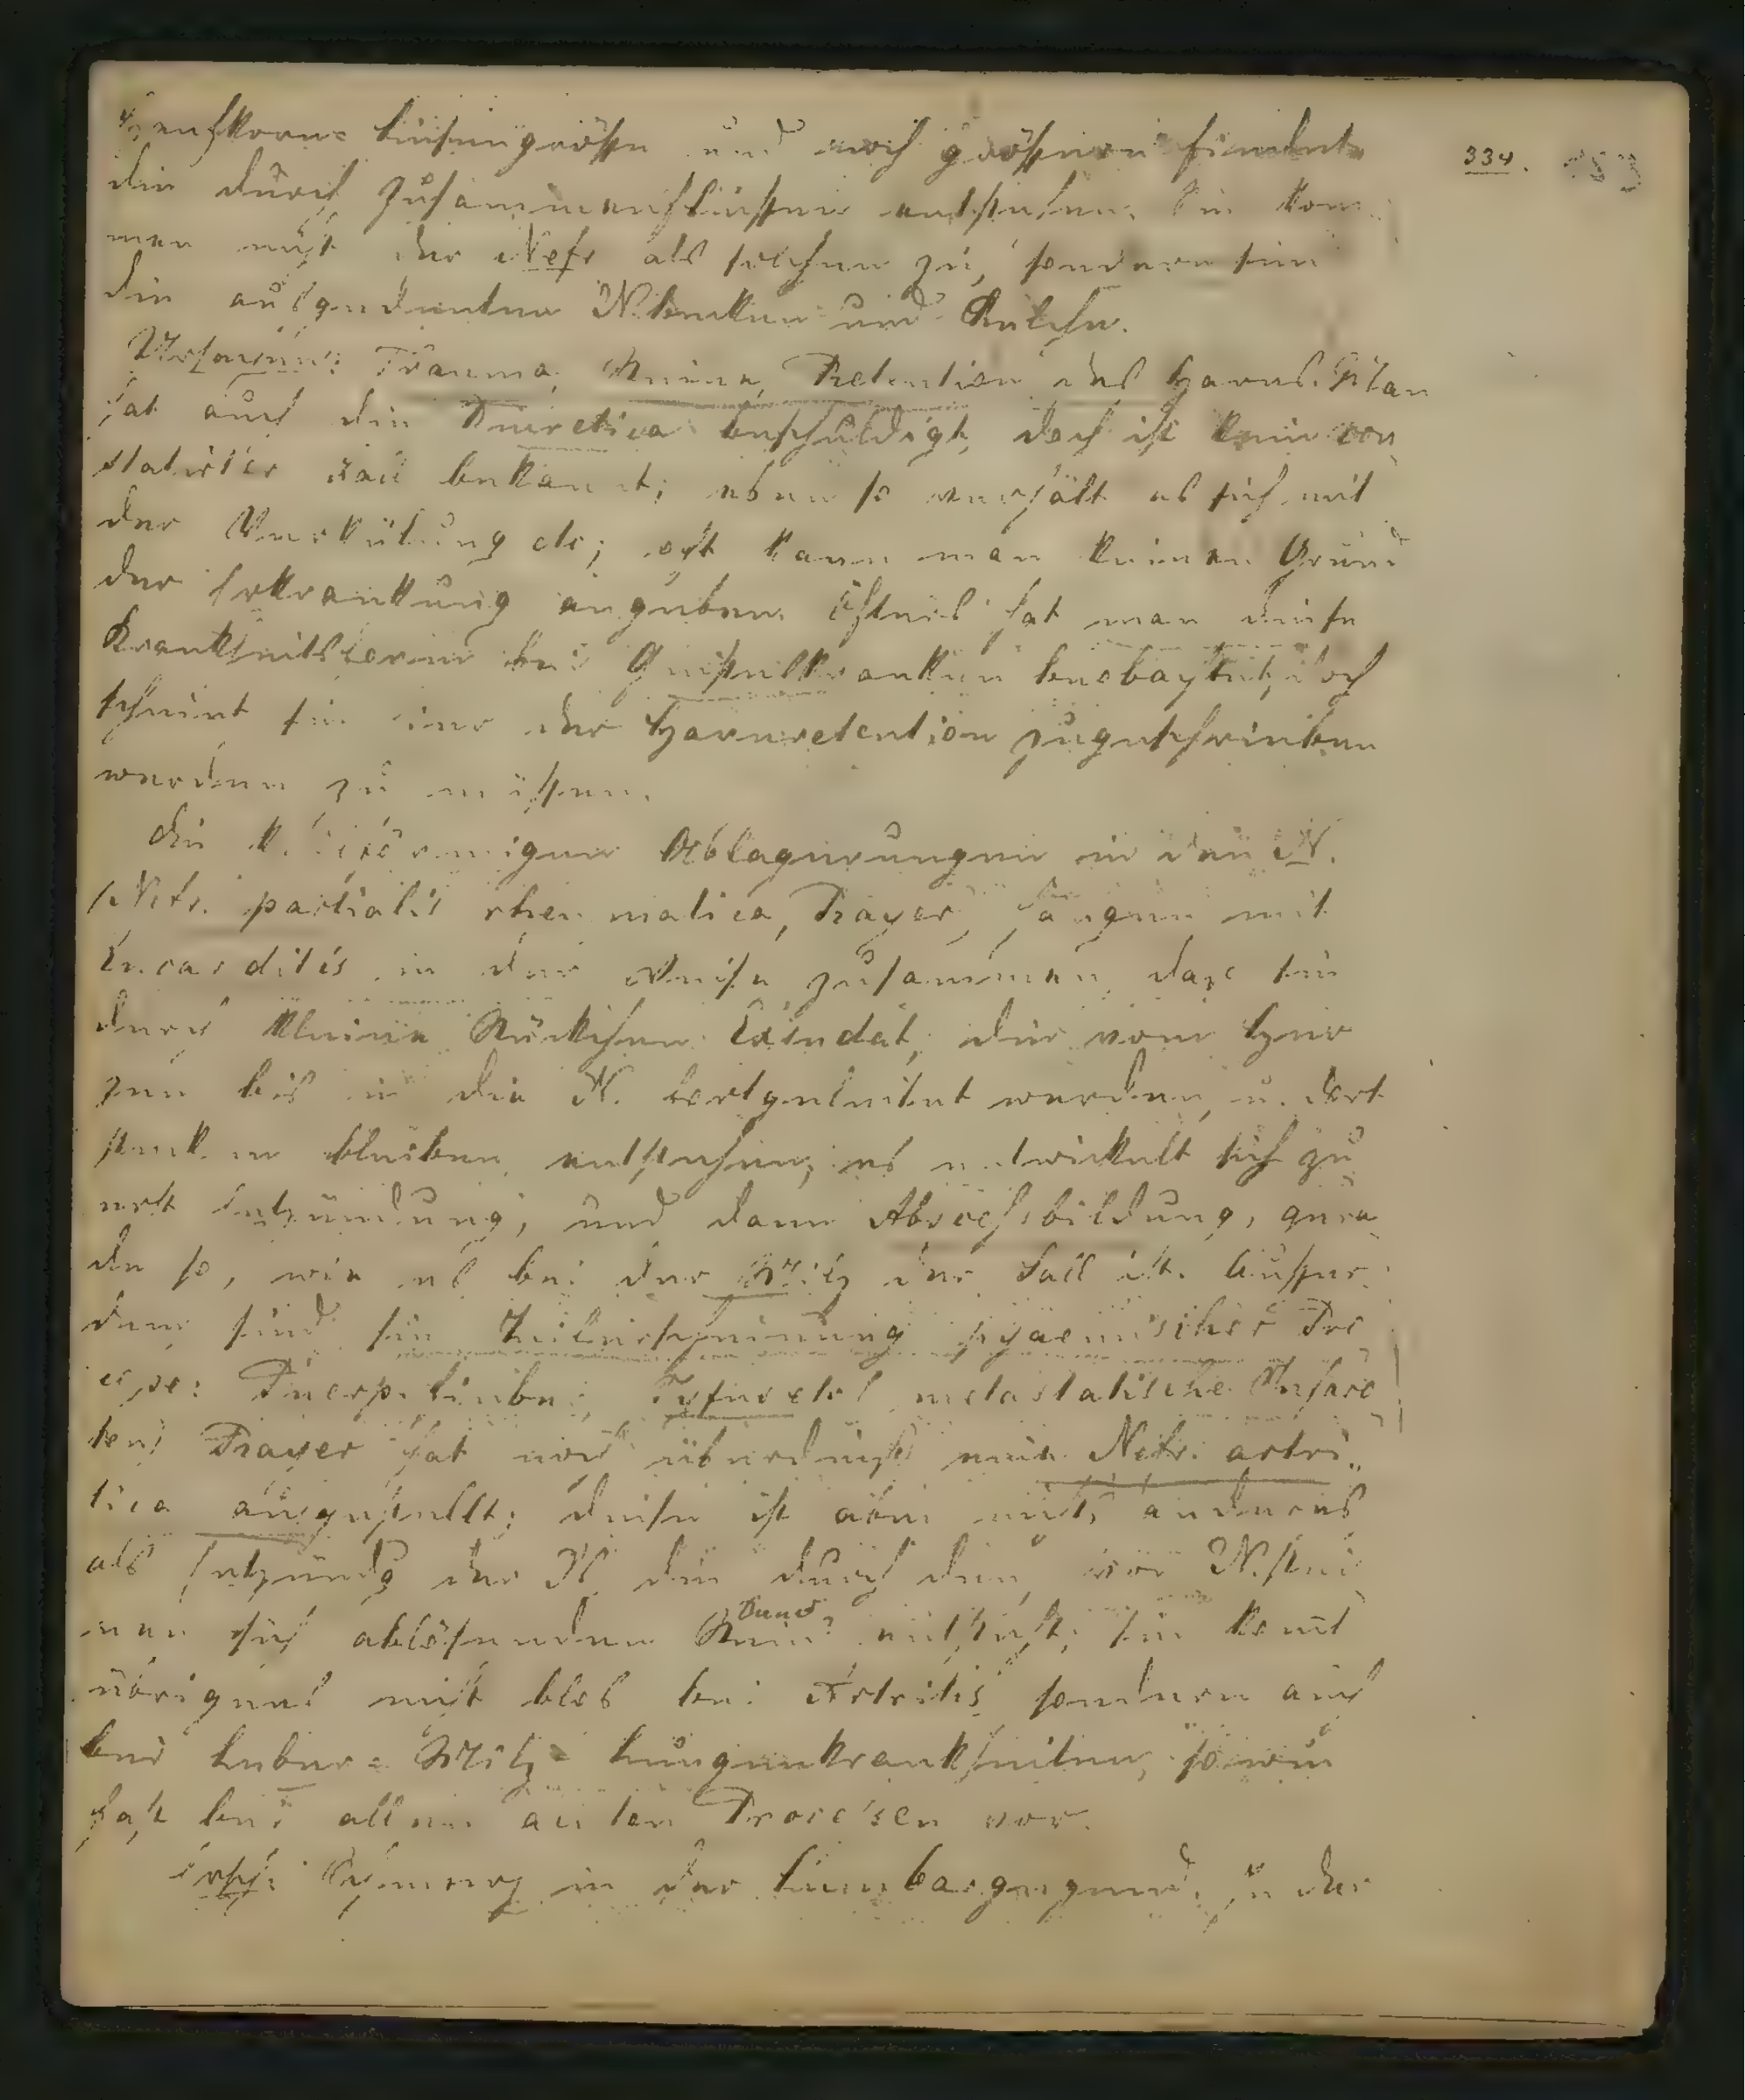 Hanfkorn= linsengrosse und noch grössere findet
die durch Zusammenfliessen entstehen. Sie kom-
men nicht der Nefr als solchen zu, sondern sind
die ausgedenten N.becken und Kelche.
Ursachen: Trauma, Steine, Retention des Harns. Man
hat auch die Diuretica beschuldigt, doch ist kein con
statirter Fall bekannt; eben so verhält es sich mit
der Verkülung etc; oft kann man keinen Grund
der Erkrankung angeben. Öfters hat man diese
Krankheitsform bei Geisteskranken beobachtet, doch
scheint sie hier der Harnretention zugeschrieben
werden zu müssen.
Die keilförmigen Ablagerungen in den N.
/Nefr. partialis rheumatica, Rayer/ hängen mit
Encarditis in der Weise zusammen, dass sie
durch kleine Stückchen Exsudat, die vom Her
zen bis in die N. fortgeleitet werden, u. dort
stecken bleiben, entstehen; es entwickelt sich zu
erst Entzündung, und dann Abscessbildung, gera
de so, wie es bei der Milz der Fall ist. Ausser
dem sind sie Teilerscheinung pyaemischer Pro
cesse: Puerp. fieber, Tyfus etc/ metastatische Infarc
ten/ Rayer hat noch überdiess eine Nefr. artri„
tica aufgestellt; diese ist aber nichts anderes
als Entzündg der N. die durch den, von N.stei
nen sich ablösenden Sand entsteht; sie komt
übrigens nicht blos bei Artritis sondern auch
bei Leber= Milz= Lungenkrankheiten, so wie
fast bei allen acuten Processen vor.
Ersch: Schmerz in der Lumbargegend, in der
334.